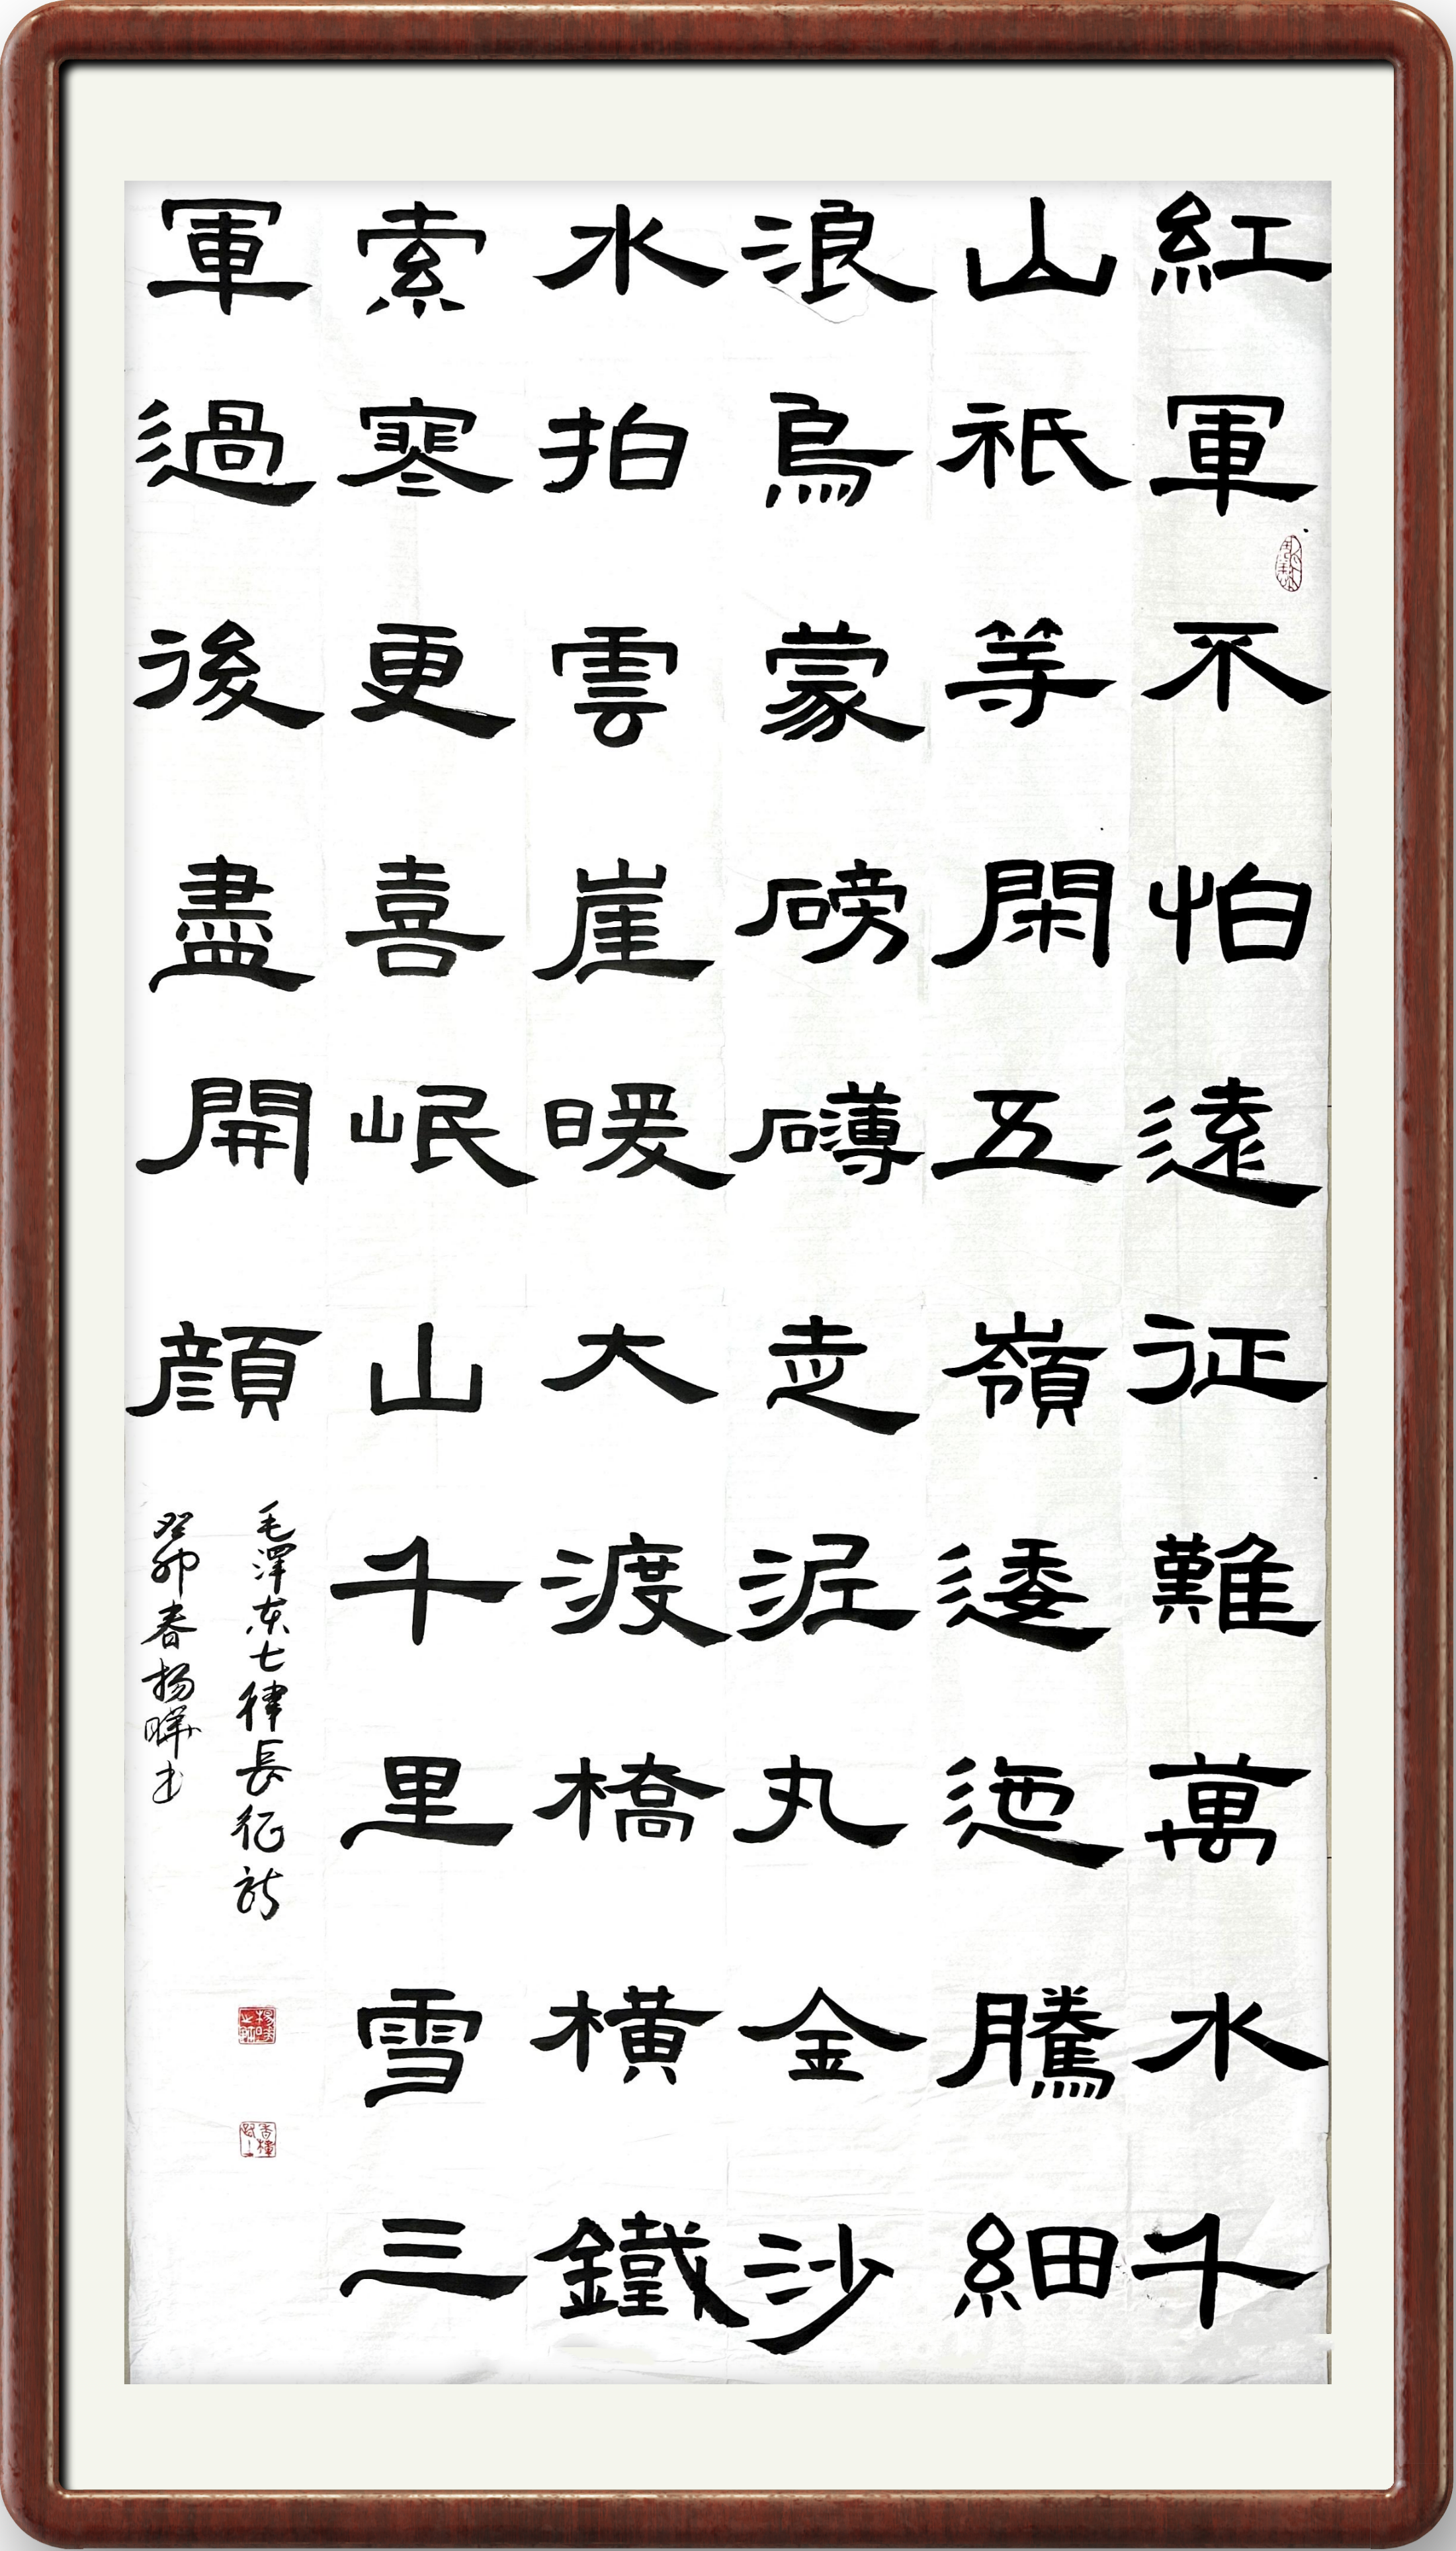 紅軍不怕遠征難萬水千
山祇等閑五嶺逶迤騰細
浪烏蒙磅礴走泥丸金沙
水拍雲崖暖大渡橋橫鐵
索寒更喜岷山千里雪三
軍過後盡開顔
毛澤东七律長征詩
癸卯春楊曄书